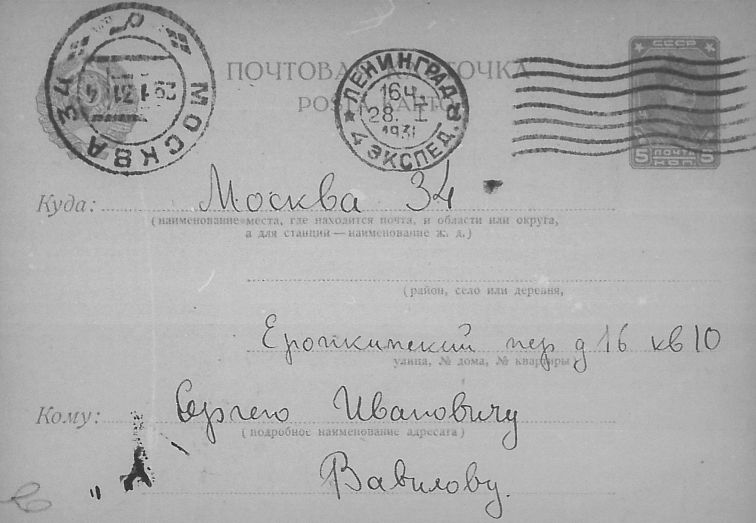 ПОЧТОВАЯ КАРТОЧКА
POSTA KARTO
МОСКВА
29 1 31 4
ЛЕНИНГРАД
16Ч.
28. I
1931
4 ЭКСПЕД.
СССР
5 ПОЧТА 5
КОП.
Куда: Москва 34
(наименование места, где находится почта, и области или округа,
а для станции — наименование ж. д.)
(район, село или деревня,
Еропкинский пер д 16 кв 10
улица, № дома, № квартиры)
Кому: Сергею Ивановичу
(подробное наименование адресата)
Вавилову.